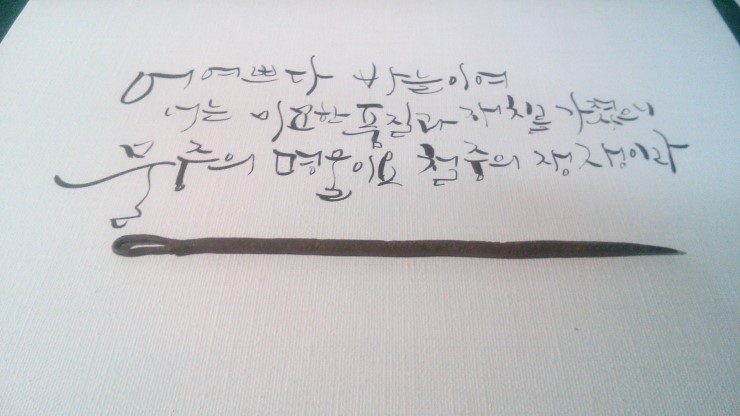 어여쁘다 바늘이여
너는 미묘한 품질과 재치를 가졌으니
물중의 명물이요 철중의 쟁쟁이라